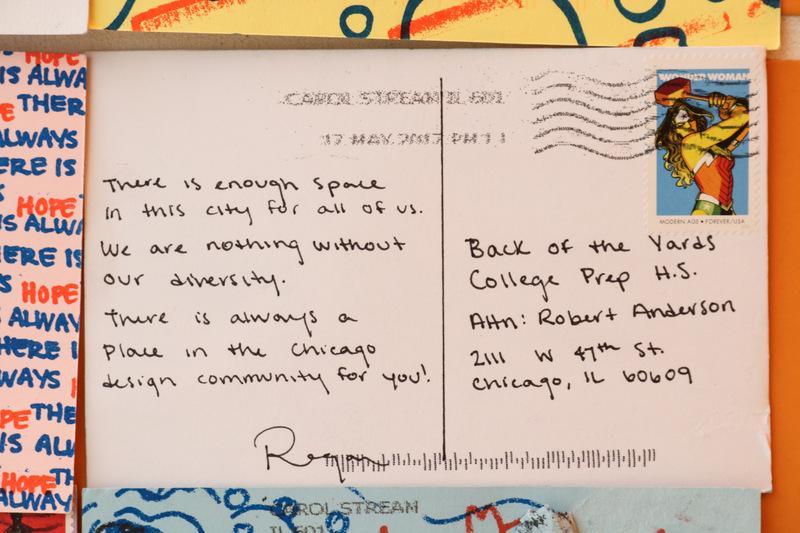 HOPE
IS ALWA
THER
ALWAYS
ERE IS
HOPE
IS ALWA
ERE IS
HOPE
ALWAY
HERE I
WAYS
PE THE
IS AL
HOPE TH
ALWAY
CAROL STREAM IL 601
17 MAY 2017 PM 1 1
WONDER WOMAN
MODERN AGE • FOREVER/USA
There is enough space
in this city for all of us.
We are nothing without
our diversity.
There is always a
place in the Chicago
design community for you!
Regan
Back of the Yards
College Prep H.S.
Attn: Robert Anderson
2111 W 47th St.
Chicago, IL 60609
CAROL STREAM
IL 601